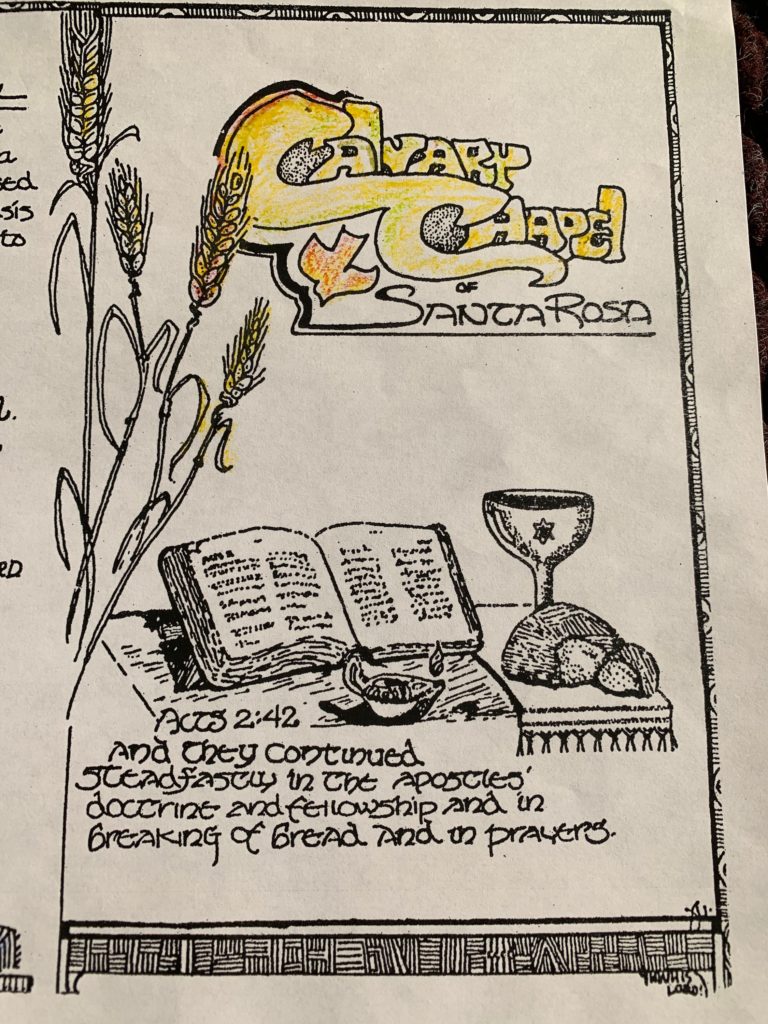 a
sed
sis
to
Calvary
Chapel
OF
SANTA ROSA
Acts 2:42
And they continued
steadfastly in the apostles'
doctrine and fellowship and in
breaking of bread and in prayers.
YHWH IS
LORD!